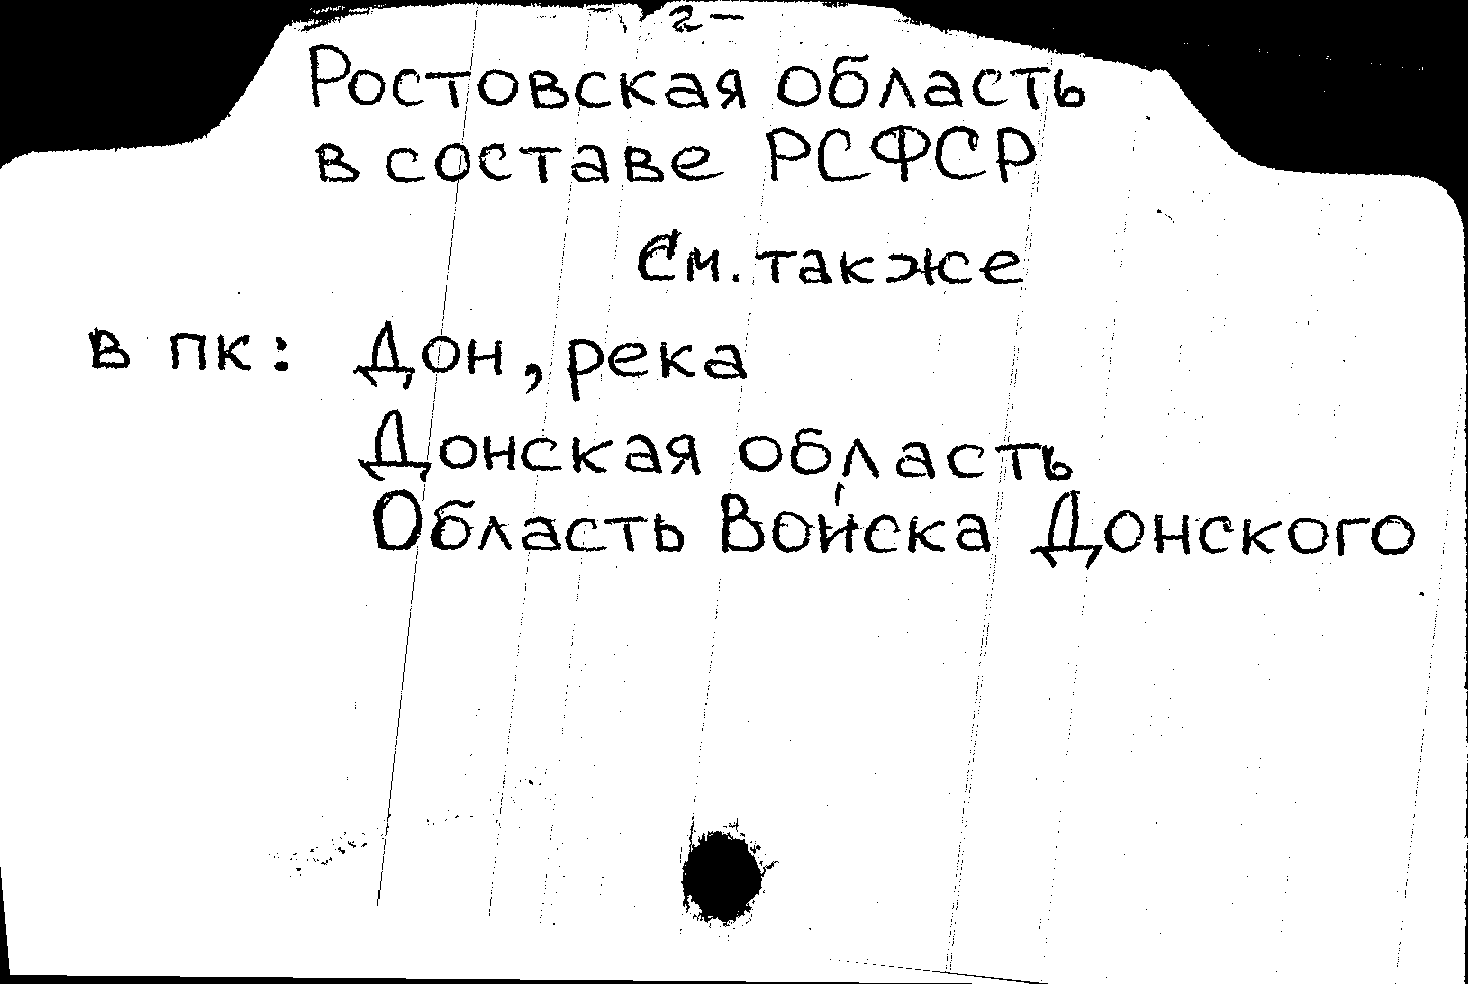 2-
Ростовская область
в составе РСФСР
См. также
в пк: Дон, река
Донская область
Область Войска Донского